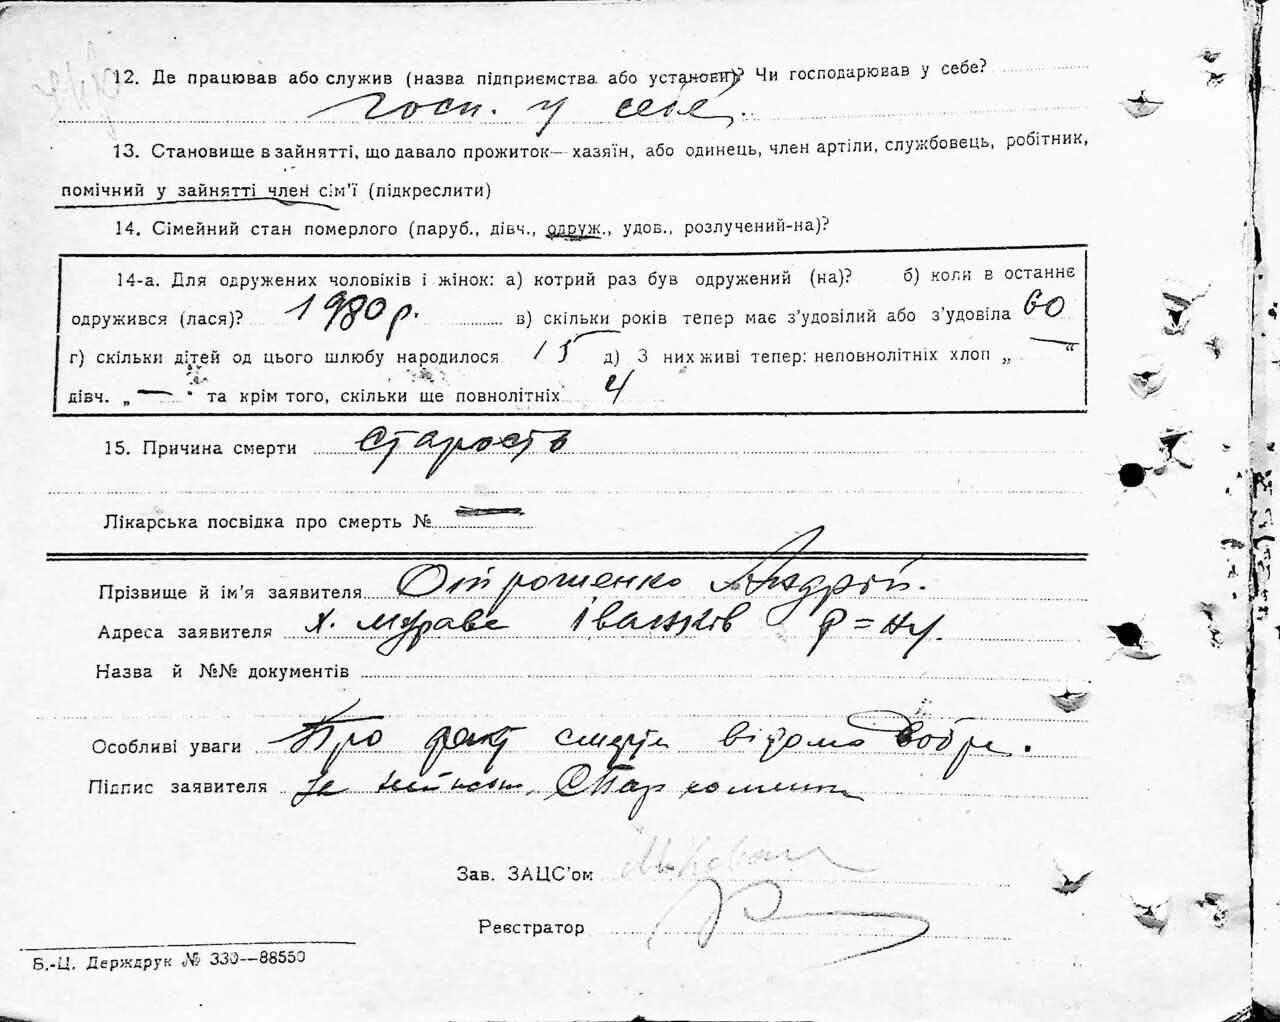 12. Де працював або служив (назва підприємства або установи)? Чи господарював у себе?
Госп. у себе.
13. Становище в зайнятті, що давало прожиток—хазяїн, або одинець, член артіли, службовець, робітник,
помічний у зайнятті член сім'ї (підкреслити)
14. Сімейний стан померлого (паруб., дівч., одруж., удов., розлучений-на)?
14-а. Для одружених чоловіків і жінок: а) котрий раз був одружений (на)? б) коли в останнє
одружився (лася)? 1980 р. в) скільки років тепер має з'удовілий або з'удовіла 60
г) скільки дітей од цього шлюбу народилося 15 д) З них живі тепер: неповнолітніх хлоп „ — “
дівч. „ — " та крім того, скільки ще повнолітніх 4
15. Причина смерти старость
Лікарська посвідка про смерть № —
Прізвище й ім'я заявителя Отрошенко Андрій.
Адреса заявителя х. Мураве Іванків р=ну.
Назва й №№ документів
Особливі уваги Про факт смерти відомо добре.
Підпис заявителя за
Зав. ЗАЦС'ом
Реєстратор
Б.-Ц. Держдрук № 330—88550